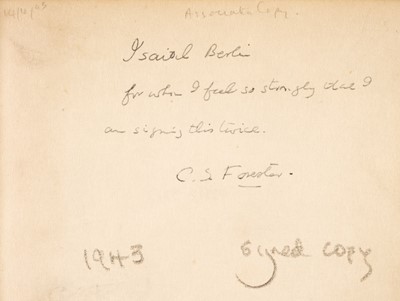 Associate Copy.
Isaiah Berlin
for whom I feel so strongly that I
am signing this twice.
C. S. Forester.
1943 signed copy